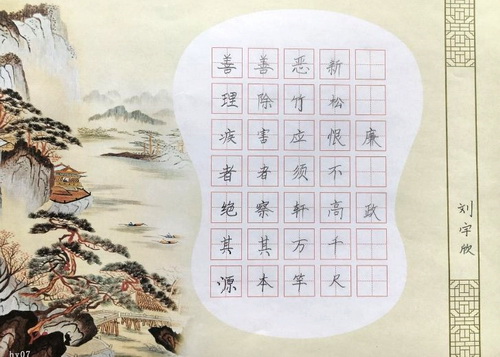 廉政
新松恨不高千尺
恶竹应须轩万竿
善除害者察其本
善理疾者绝其源
刘宇欣